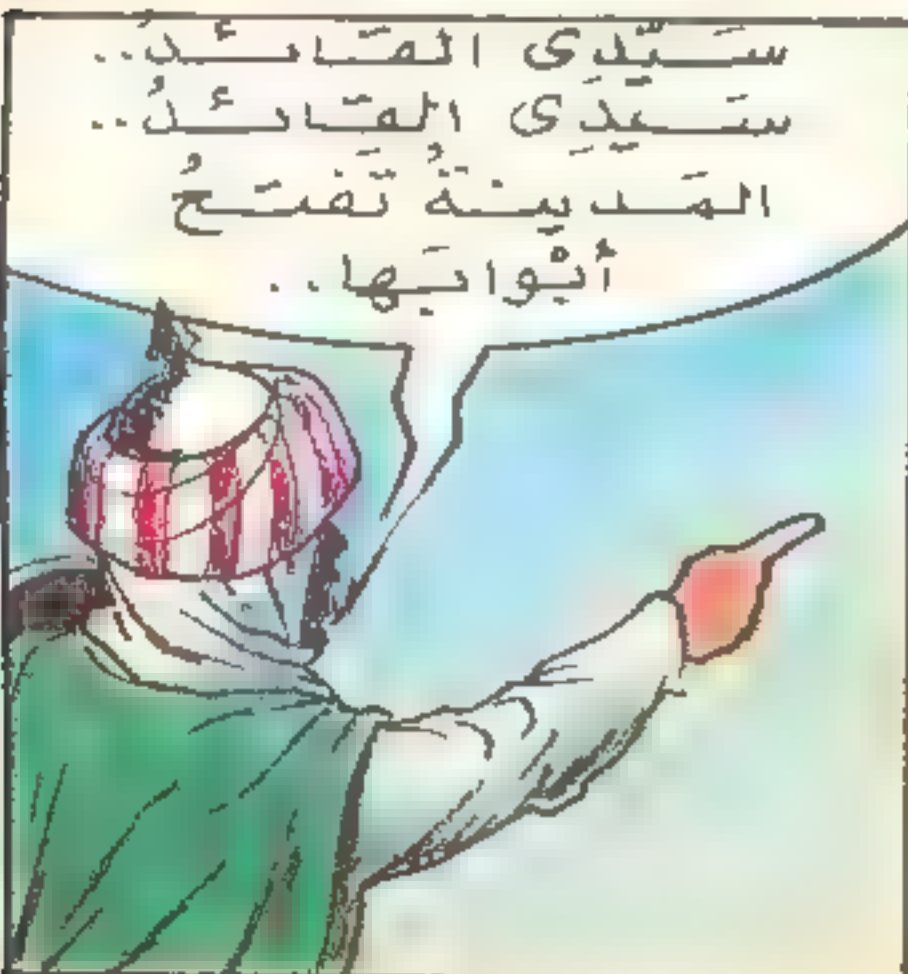 سَيِّدِى القَائدُ..
سَيِّدِى القَائدُ..
المَدينةُ تَفتَحُ
أبْوابَها..